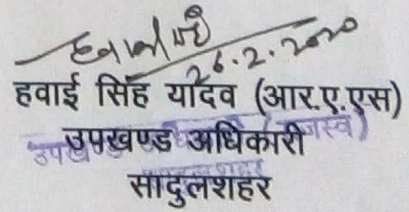 26.2.2020
हवाई सिंह यादव (आर.ए.एस)
उपखण्ड अधिकारी
सादुलशहर